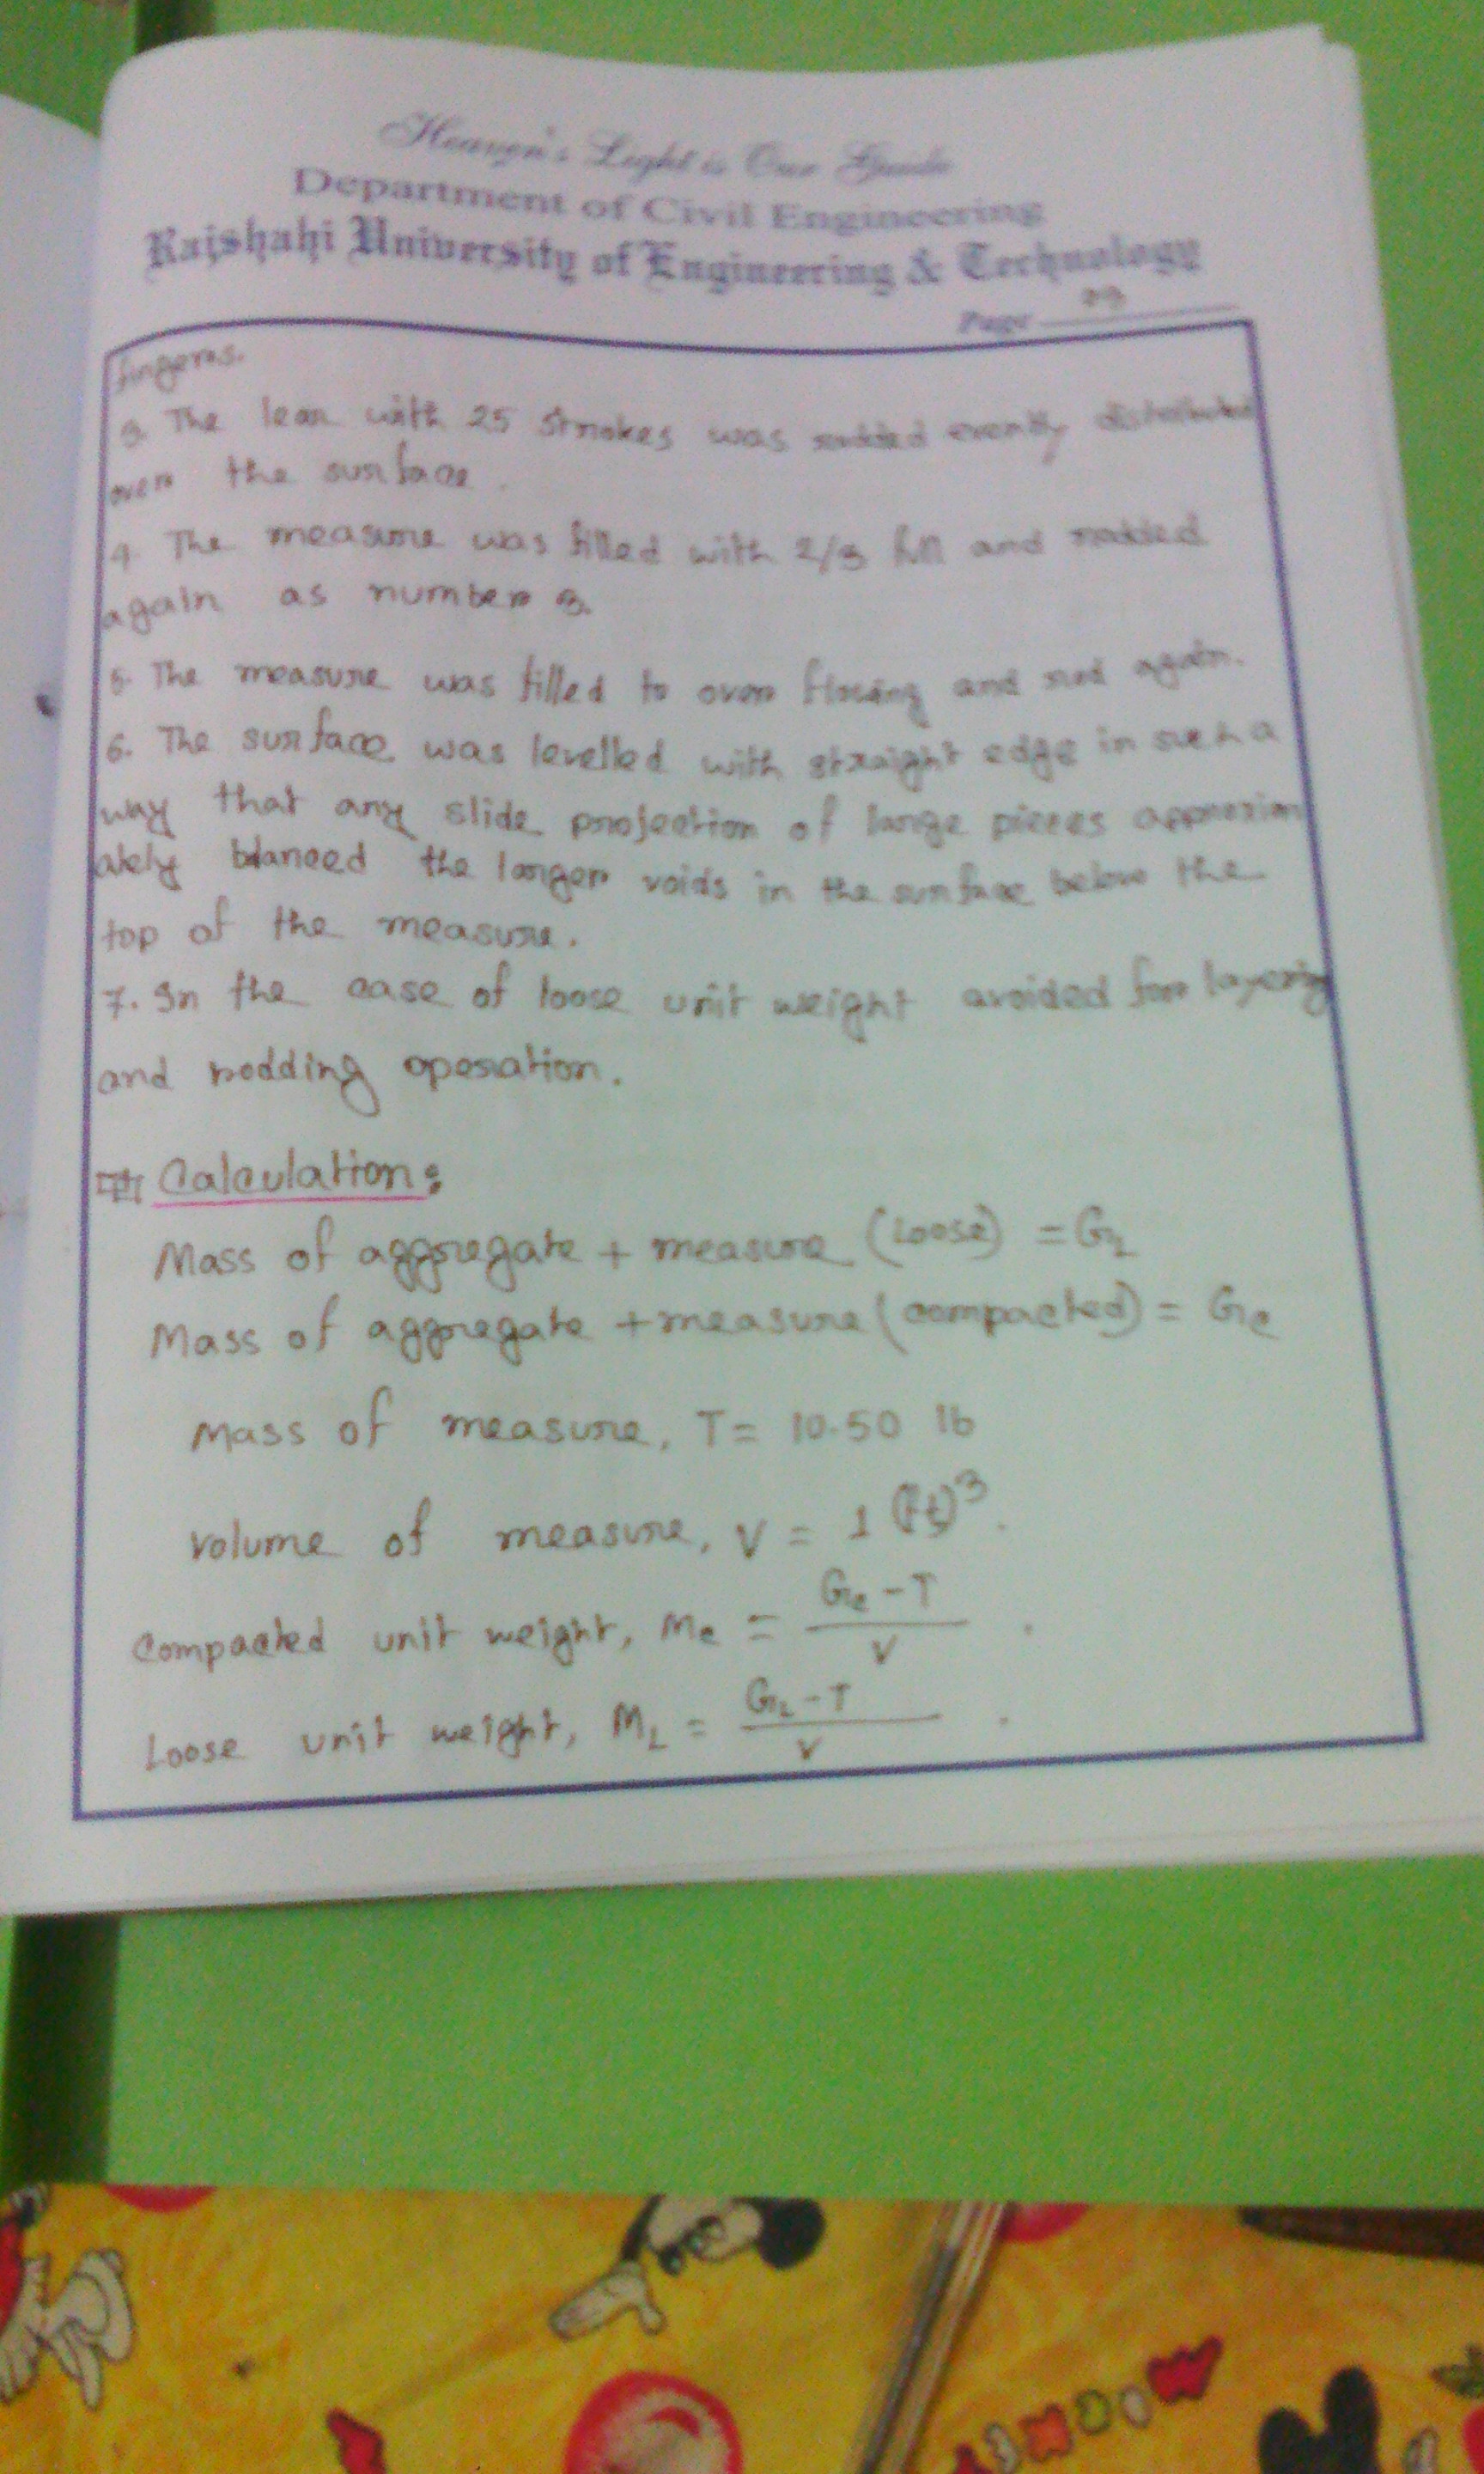 Heaven's Light is Our Guide
Department of Civil Engineering
Rajshahi University of Engineering & Technology
Page
fingers.
3. The lear with 25 strokes was rodded evenly distributed
over the surface.
4. The measure was filled with 2/3 full and rodded
again as number 3.
5. The measure was filled to over flowing and rod again.
6. The surface was levelled with straight edge in such a
way that any slide projection of large pieces approxim
ately blanced the larger voids in the surface below the
top of the measure.
7. In the case of loose unit weight avoided for layering
and rodding operation.
Calculation:
Mass of aggregate + measure (Loose) = G_L
Mass of aggregate + measure (compacted) = G_c
Mass of measure, T = 10.50 lb
Volume of measure, V = 1 (ft)³.
Compacted unit weight, M_c = (G_c - T) / V.
Loose unit weight, M_L = (G_L - T) / V.